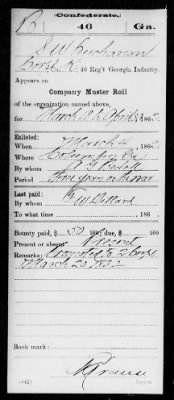 Confederate.
B 46 Ga.
S W Buchanan
Corpl, Co. K, 46 Reg't Georgia Infantry.
Appears on
Company Muster Roll
of the organization named above,
for March 12 to April 30, 1862.
Enlisted:
When March 4, 1862
Where Columbus Ga
By whom
Period Three years or the war
Last paid:
By whom
To what time , 186 .
Bounty paid $ 50 ; due $ 100
Present or absent Present
Remarks: Promoted to 2 Corpl
March 23 1862
Book mark: